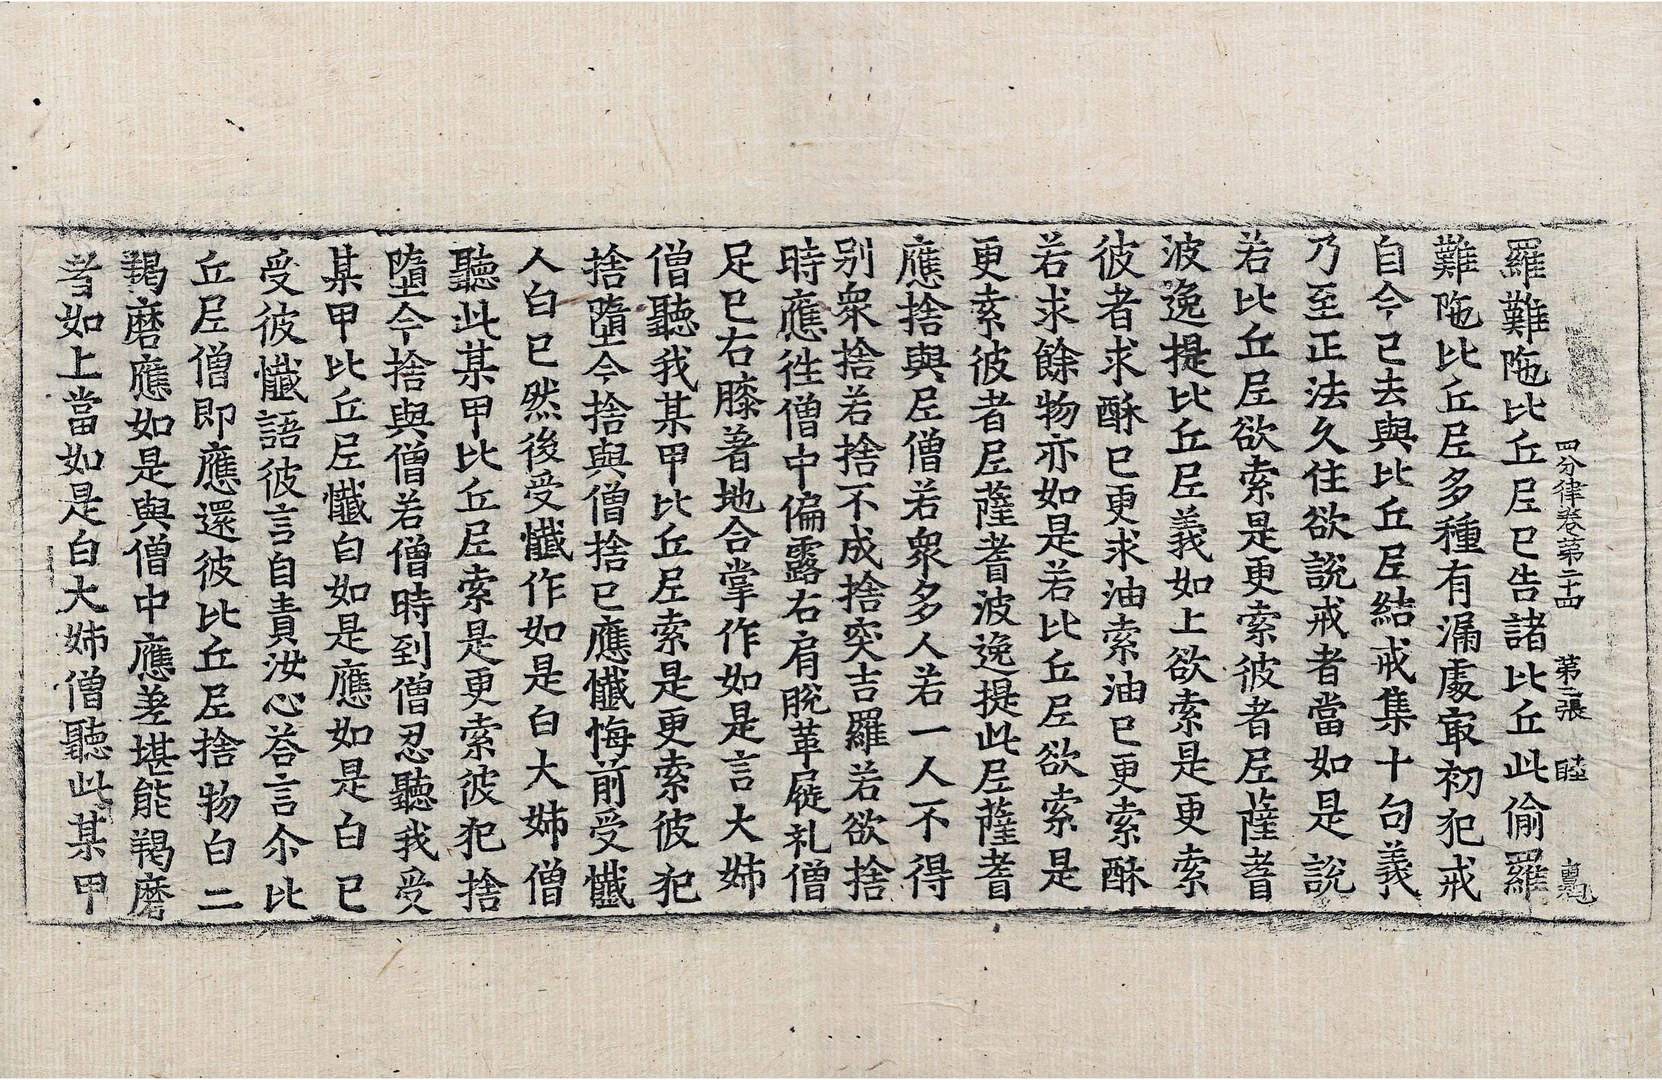 四分律卷第二十四 第二張 睦
羅難陁比丘尼已告諸比丘此偷羅
難陁比丘尼多種有漏處冣初犯戒
自今已去與比丘尼結戒集十句義
乃至正法久住欲說戒者當如是說
若比丘尼欲索是更索彼者尼薩耆
波逸提比丘尼義如上欲索是更索
彼者求酥已更求油索油已更索酥
若求餘物亦如是若比丘尼欲索是
更索彼者尼薩耆波逸提此尼薩耆
應捨與尼僧若衆多人若一人不得
别衆捨若捨不成捨突吉羅若欲捨
時應徃僧中偏露右肩脫革屣礼僧
足已右膝著地合掌作如是言大姊
僧聽我某甲比丘尼索是更索彼犯
捨墮今捨與僧捨已應懺悔前受懺
人白已然後受懺作如是白大姊僧
聽此某甲比丘尼索是更索彼犯捨
墮今捨與僧若僧時到僧忍聽我受
某甲比丘尼懺白如是應如是白已
受彼懺語彼言自責汝心荅言尒比
丘尼僧即應還彼比丘尼捨物白二
羯磨應如是與僧中應差堪能羯磨
者如上當如是白大姊僧聽此某甲